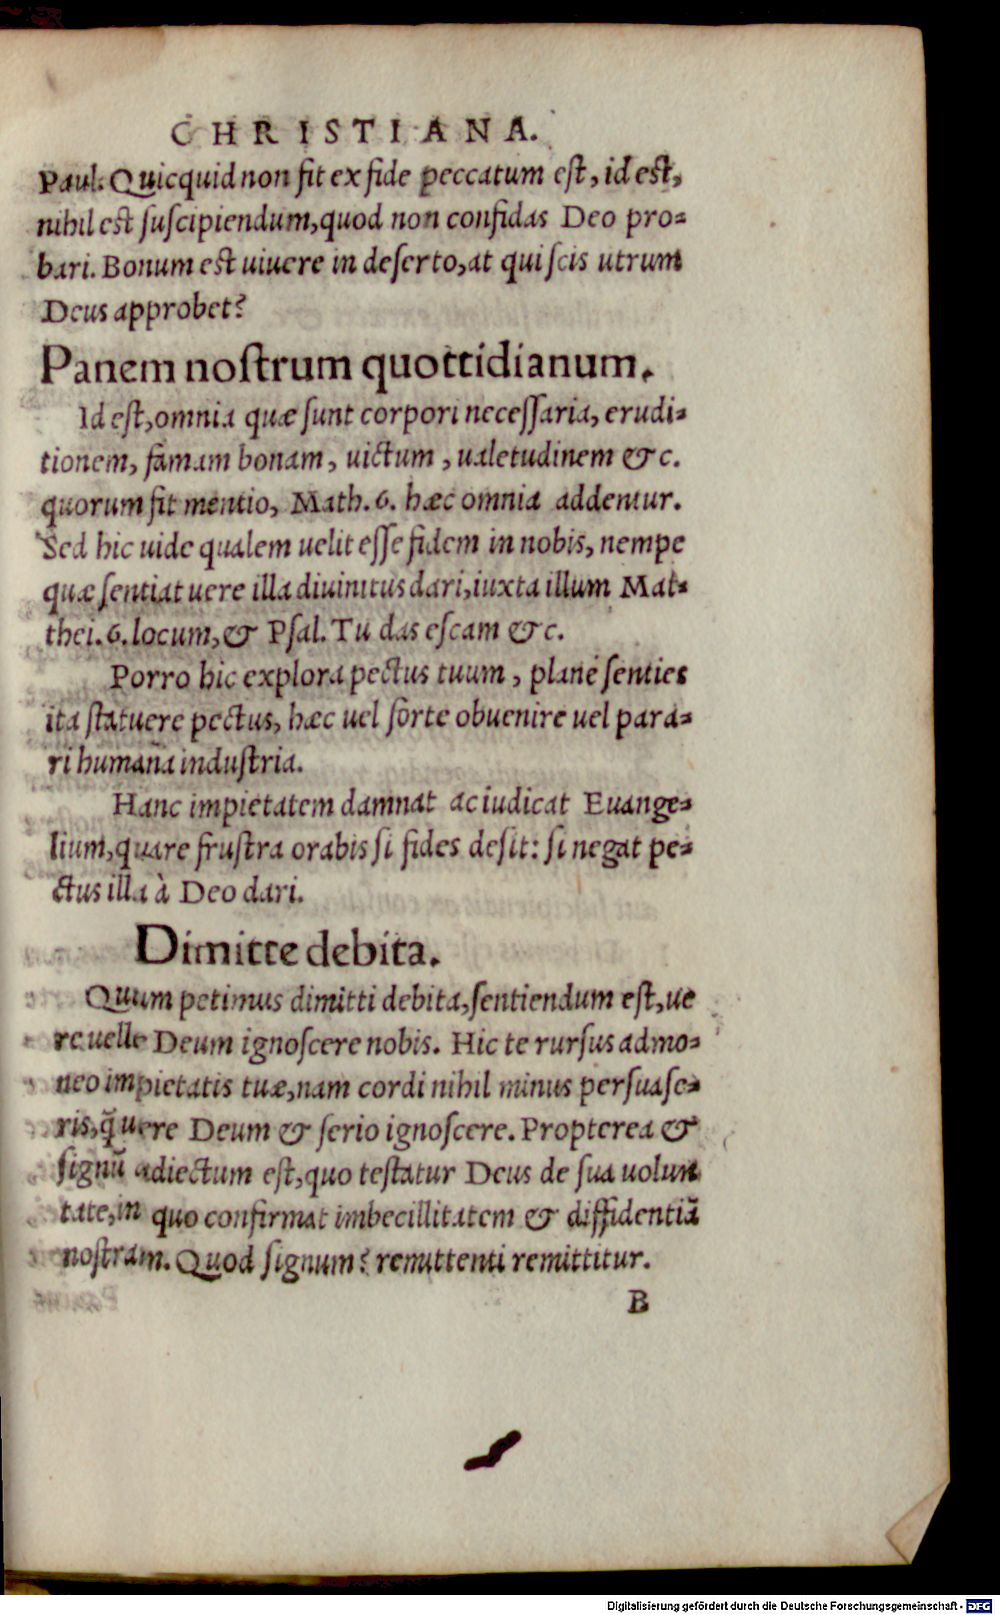 CHRISTIANA.
Paul. Quicquid non fit ex fide peccatum est, id est,
nihil est suscipiendum, quod non confidas Deo pro-
bari. Bonum est uiuere in deserto, at qui scis utrum
Deus approbet?
Panem nostrum quottidianum.
Id est, omnia quæ sunt corpori necessaria, erudi-
tionem, famam bonam, uictum, ualetudinem &c.
quorum fit mentio, Math. 6. hæc omnia addentur.
Sed hic uide qualem uelit esse fidem in nobis, nempe
quæ sentiat uere illa diuinitus dari, iuxta illum Mat-
thei. 6. locum, & Psal. Tu das escam &c.
Porro hic explora pectus tuum, planè senties
ita statuere pectus, hæc uel forte obuenire uel para-
ri humana industria.
Hanc impietatem damnat ac iudicat Euange-
lium, quare frustra orabis si fides desit: si negat pe-
ctus illa à Deo dari.
Dimitte debita.
Quum petimus dimitti debita, sentiendum est, ue
re uelle Deum ignoscere nobis. Hic te rursus admo-
neo impietatis tuæ, nam cordi nihil minus persuase-
ris, q̃ uere Deum & serio ignoscere. Propterea &
signũ adiectum est, quo testatur Deus de sua volun
tate, in quo confirmat imbecillitatem & diffidentiã
nostram. Quod signum? remittenti remittitur.
B
Digitalisierung gefördert durch die Deutsche Forschungsgemeinschaft - DFG